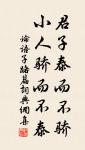 君子泰而不骄
小人骄而不泰
论语子路篇词典网集